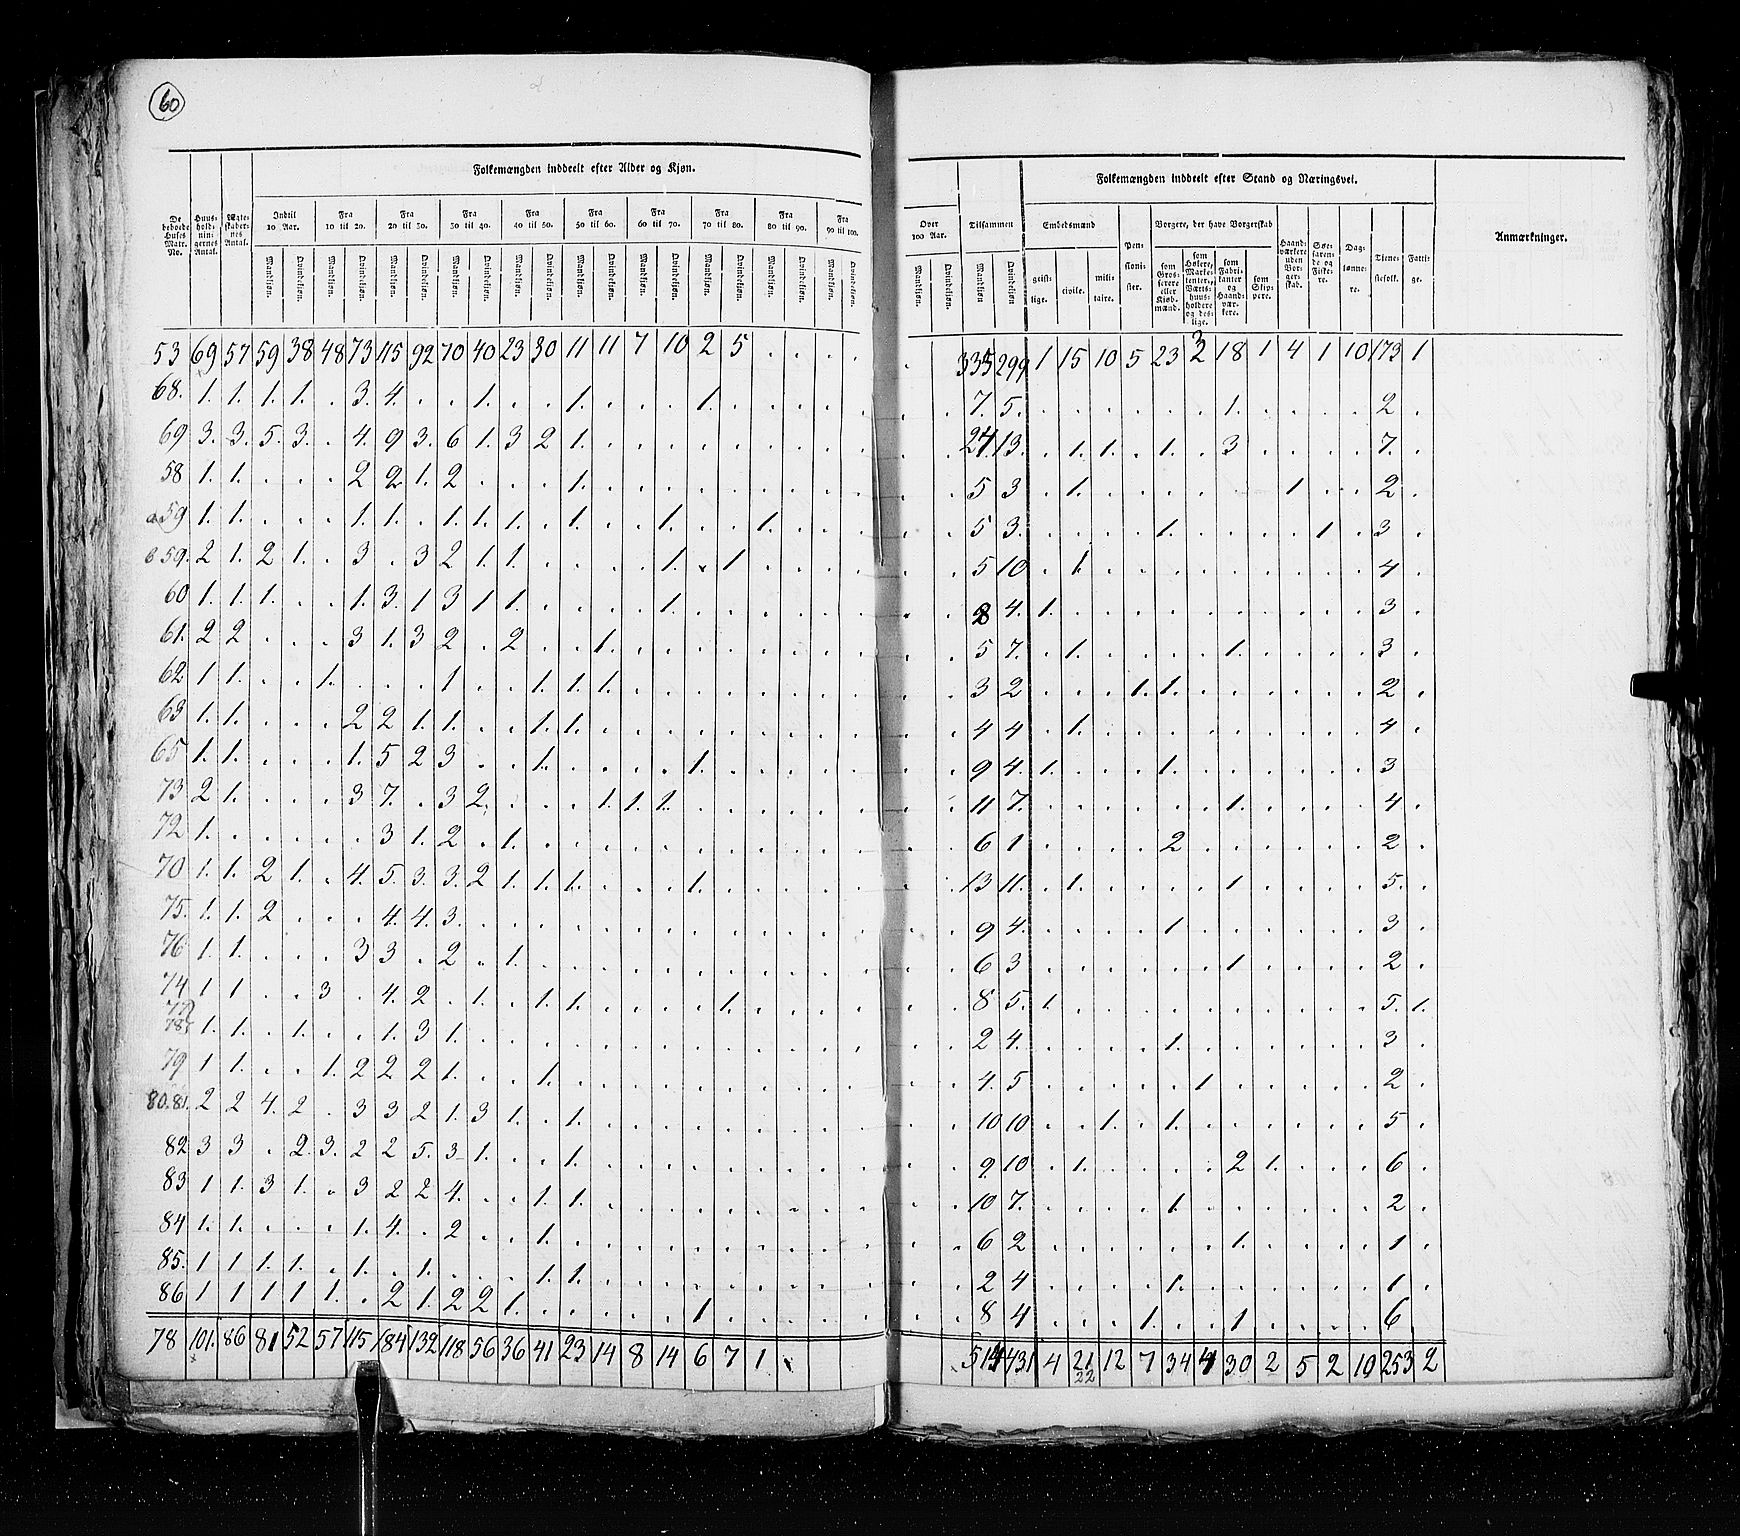 60
Folkemængden inddeelt efter Alder og Kjøn.
Folkemængden inddeelt efter Stand og Næringsvei.
De beboede Huses Matr. No.
Huus-hold-nin-gernes Antal.
Ægte-skaber-nes Antal.
Indtil 10 Aar.
Fra 10 til 20.
Fra 20 til 30.
Fra 30 til 40.
Fra 40 til 50.
Fra 50 til 60.
Fra 60 til 70.
Fra 70 til 80.
Fra 80 til 90.
Fra 90 til 100.
Over 100 Aar.
Tilsammen
Embedsmænd
Pen-sioni-ster.
Borgere, der have Borgerskab
Haand-værkere uden Bor-ger-skab.
Søe-farende og Fiske-re.
Dag-lønne-re.
Tiene-stefolk.
Fatti-ge.
Anmærkninger.
Mandkjøn. Qvindekjøn. Mandkjøn. Qvindekjøn. Mandkjøn. Qvindekjøn. Mandkjøn. Qvindekjøn. Mandkjøn. Qvindekjøn. Mandkjøn. Qvindekjøn. Mandkjøn. Qvindekjøn. Mandkjøn. Qvindekjøn. Mandkjøn. Qvindekjøn. Mandkjøn. Qvindekjøn. Mandkjøn. Qvindekjøn. Mandkjøn Qvindekjøn.
geist-lige. civile. mili-taire.
som Gros-serere eller Kiøb-mænd.
som Høkere, Marke-tenter, Værts-huus-holdere og des-lige.
som Fabri-kanter og Haand-vær-kere.
som Skip-pere.
53 69 57 59 38 48 73 115 92 70 40 23 30 11 11 7 10 2 5 . . . . . 335 299 1 15 10 5 23 3 18 1 4 1 10 173 1
68. 1. 1. 1. 1. . 3. 4. . . 1. . . 1. . . . 1. . . . . . . . 7. 5. . . . . . . 1. . . . . 2 .
69 3. 3. 5. 3. . 4. 9 3. 6 1. 3 2 1. . . . . . . . . . . . 24 13. . 1. 1. . 1. . 3 . . . . 7. .
58 1. 1. . . . 2 2 1. 2 . . . 1. . . . . . . . . . . . 5 3 . 1. . . . . . . 1 . . 2 .
a 59 1. 1. . . . 1. 1. . 1. 1. 1. . 1. . . 1. . . 1. . . . . . 5 3. . . . . 1. . . . . 1 . 3 .
b 59. 2 1. 2 1. . 3 . 3 2 1. 1. . . . . 1. . 1 . . . . . . 5 10 . 1. . . . . . . . . . 4 .
60 1. 1. 1. . . 1. 3. 1 3 1 1. . . . . 1. . . . . . . . . 8 4. 1. . . . . . . . . . . 3 .
61. 2 2 . . . 3 1. 3 2 . 2 . . 1. . . . . . . . . . . 5 7. . 1. . . . . 1. . . . . 3 .
62. 1 1. . . 1. . . . 1 . . 1. 1. 1. . . . . . . . . . . 3 2 . . . 1. 1. . . . . . . 2 .
63 1. 1. . . . 2 2 1. 1. . . 1. 1. . . . . . . . . . . . 4 4 . 1. . . . . . . . . . 4 .
65 1. 1. . . . 1. 5 2 3 . . 1. . . . . 1. . . . . . . . 9 4. 1. . . . 1. . . . . . . 3
73 2 1. . . . 3 7. . 3 2. . . . 1. 1. 1. . . . . . . . . 11 7. . . . . . . 1. . . . . 4 .
72 1. . . . . . 3 1. 2 . 1. . . . . . . . . . . . . . 6 1 . . . . 2 . . . . . . 2 .
70 1. 1. 2 1. . 4. 5. 3. 3. 2 1. 1. 1. . . . 1. . . . . . . . 13 11. . 1. . . . . 1 . . . . 5. .
75. 1. 1. 2 . . . 4. 4. 3. . . . . . . . . . . . . . . . 9 4. . . . . 1 . . . . . . 3 .
76 1. 1. . . . 3 3 . 2 . 1. . . . . . . . . . . . . . 6 3 . . . . . . 1 . . . . 2 .
74 1 1 . . 3 . 4. 2 . 1. . 1. 1. . . . . 1. . . . . . . 8 5. 1. . . . . . . . . . . 5. 1.
77
78 1. 1. . 1. . . 1. 3 1. . . . . . . . . . . . . . . . 2 4. . . . . 1. . . . . . . 3 .
79 1 1. . . 1. 2 2 2 1. . . 1. . . . . . . . . . . . . 4. 5 . . . . . 1 . . . . . 2 .
80.81. 2 2 4. 2 . 3 3 2 1. 3 1. . 1. . . . . . . . . . . . 10 10 . . 1. . 1. . . . . . . 5 .
82 3 3 . 2. 3. 2 2 5. 3 1. . . 1. . . . . . . . . . . . 9. 10 . 1. . . . . 2 1. . . . 6 .
83 1 1. 3 1. . 3 2 2 4. . . 1. 1. . . . . . . . . . . . 10 7. . . . . 1 . . . . . . 2 .
84 1. 1. . . . 1. 4. . 2 . . 1. . . . . . . . . . . . . 6 2 . . . . . . 1. . . . . 1 .
85. 1 1 1. 1. . 1. . 1. . . . 1. 1. . . . . . . . . . . . 2 4 . . . . 1. . . . . . 1 .
86 1 1 1 1 1. . 2 1. 2 2 1. . . . . . 1 . . . . . . . 8 4 . . . 1. . . 1 . . . . 6
78 101. 86 81 52 57 115 184 132 118 56 36 41 23 14 8 14 6 7 1 514 431 4 21 12 7 34 4 30 2 5 2 10 253 2
22